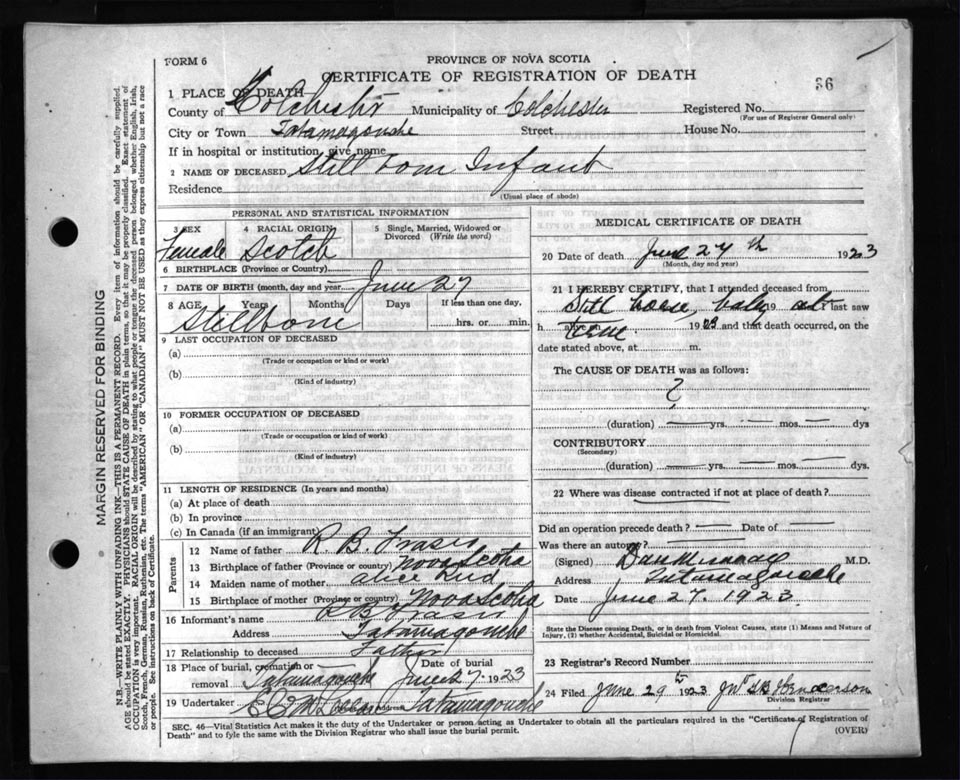 FORM 6
PROVINCE OF NOVA SCOTIA
CERTIFICATE OF REGISTRATION OF DEATH
36
1 PLACE OF DEATH
County of Colchester Municipality of Colchester Registered No.
(For use of Registrar General only)
City or Town Tatamagouche Street House No.
If in hospital or institution, give name
2 NAME OF DECEASED Still born Infant
Residence
(Usual place of abode)
PERSONAL AND STATISTICAL INFORMATION
3 SEX 4 RACIAL ORIGIN 5 Single, Married, Widowed or Divorced (Write the word)
Female Scotch
6 BIRTHPLACE (Province or County)
7 DATE OF BIRTH (month, day and year) June 27
8 AGE Years Months Days If less than one day,
Stillborn hrs. or min.
9 LAST OCCUPATION OF DECEASED
(a)
(Trade or occupation or kind of work)
(b)
(Kind of industry)
10 FORMER OCCUPATION OF DECEASED
(a)
(Trade or occupation or kind of work)
(b)
(Kind of industry)
11 LENGTH OF RESIDENCE (In years and months)
(a) At place of death
(b) In province
(c) In Canada (if an immigrant)
Parents
12 Name of father R. B. Fraser
13 Birthplace of father (Province or country) Nova Scotia
14 Maiden name of mother Alice Reid
15 Birthplace of mother (Province or country) Nova Scotia
16 Informant's name R B Fraser
Address Tatamagouche
17 Relationship to deceased Father
18 Place of burial, cremation or removal Tatamagouche Date of burial June 27. 1923
19 Undertaker Address Tatamagouche
MEDICAL CERTIFICATE OF DEATH
20 Date of death June 27th 1923
(Month, day and year)
21 I HEREBY CERTIFY, that I attended deceased from
Still 19 last saw
h alive on 1923 and that death occurred, on the
date stated above, at m.
The CAUSE OF DEATH was as follows:
?
(duration) yrs. mos. dys
CONTRIBUTORY
(Secondary)
(duration) yrs. mos. dys
22 Where was disease contracted if not at place of death?
Did an operation precede death? Date of
Was there an autopsy?
(Signed) M.D.
Address Tatamagouche
Date June 27. 1923
State the Disease Causing Death, or in death from Violent Causes, state (1) Means and Nature of
Injury, (2) whether Accidental, Suicidal or Homicidal.
23 Registrar's Record Number
24 Filed June 29th 1923
Division Registrar
SEC. 46—Vital Statistics Act makes it the duty of the Undertaker or person acting as Undertaker to obtain all the particulars required in the "Certificate of Registration of
Death" and to fyle the same with the Division Registrar who shall issue the burial permit.
(OVER)
MARGIN RESERVED FOR BINDING
N.B.—WRITE PLAINLY WITH UNFADING INK—THIS IS A PERMANENT RECORD. Every item of information should be carefully supplied.
AGE should be stated EXACTLY. PHYSICIANS should STATE CAUSE OF DEATH in plain terms, so that it may be properly classified. Exact statement of
OCCUPATION is very important. RACIAL ORIGIN will be described by stating to what people or tongue the deceased person belonged whether English, Irish,
Scotch, French, German, Russian, Ruthenian, etc. The terms "AMERICAN" or "CANADIAN" MUST NOT BE USED as they express citizenship but not a race
or people. See instructions on back of Certificate.